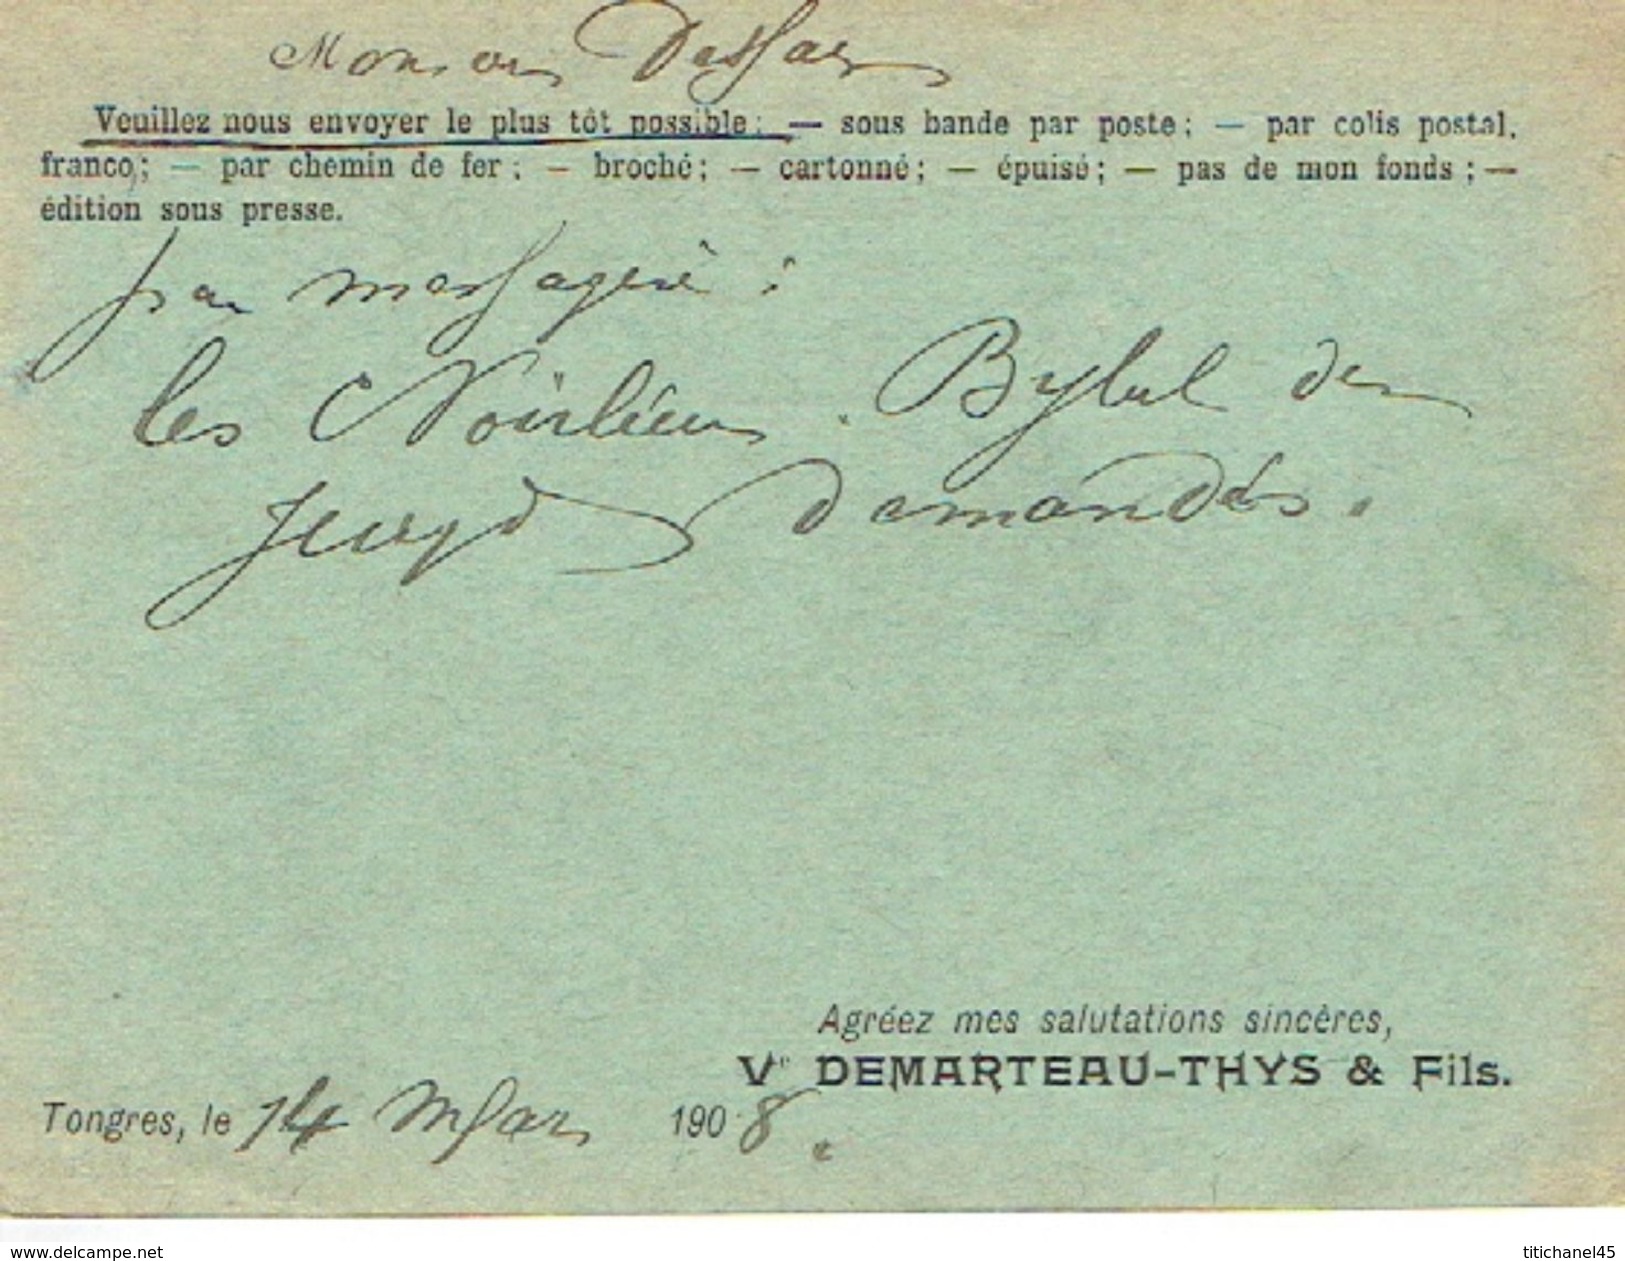 Monsieur Dessain
Veuillez nous envoyer le plus tôt possible: — sous bande par poste; — par colis postal,
franco; — par chemin de fer; — broché; — cartonné; — épuisé; — pas de mon fonds; —
édition sous presse.
par messagerie :
les Noirlieu. Bybel der
Jeugd demandés.
Agréez mes salutations sincères,
Ve DEMARTEAU-THYS & Fils.
Tongres, le 14 Mars 1908.
www.delcampe.net
titichanel45